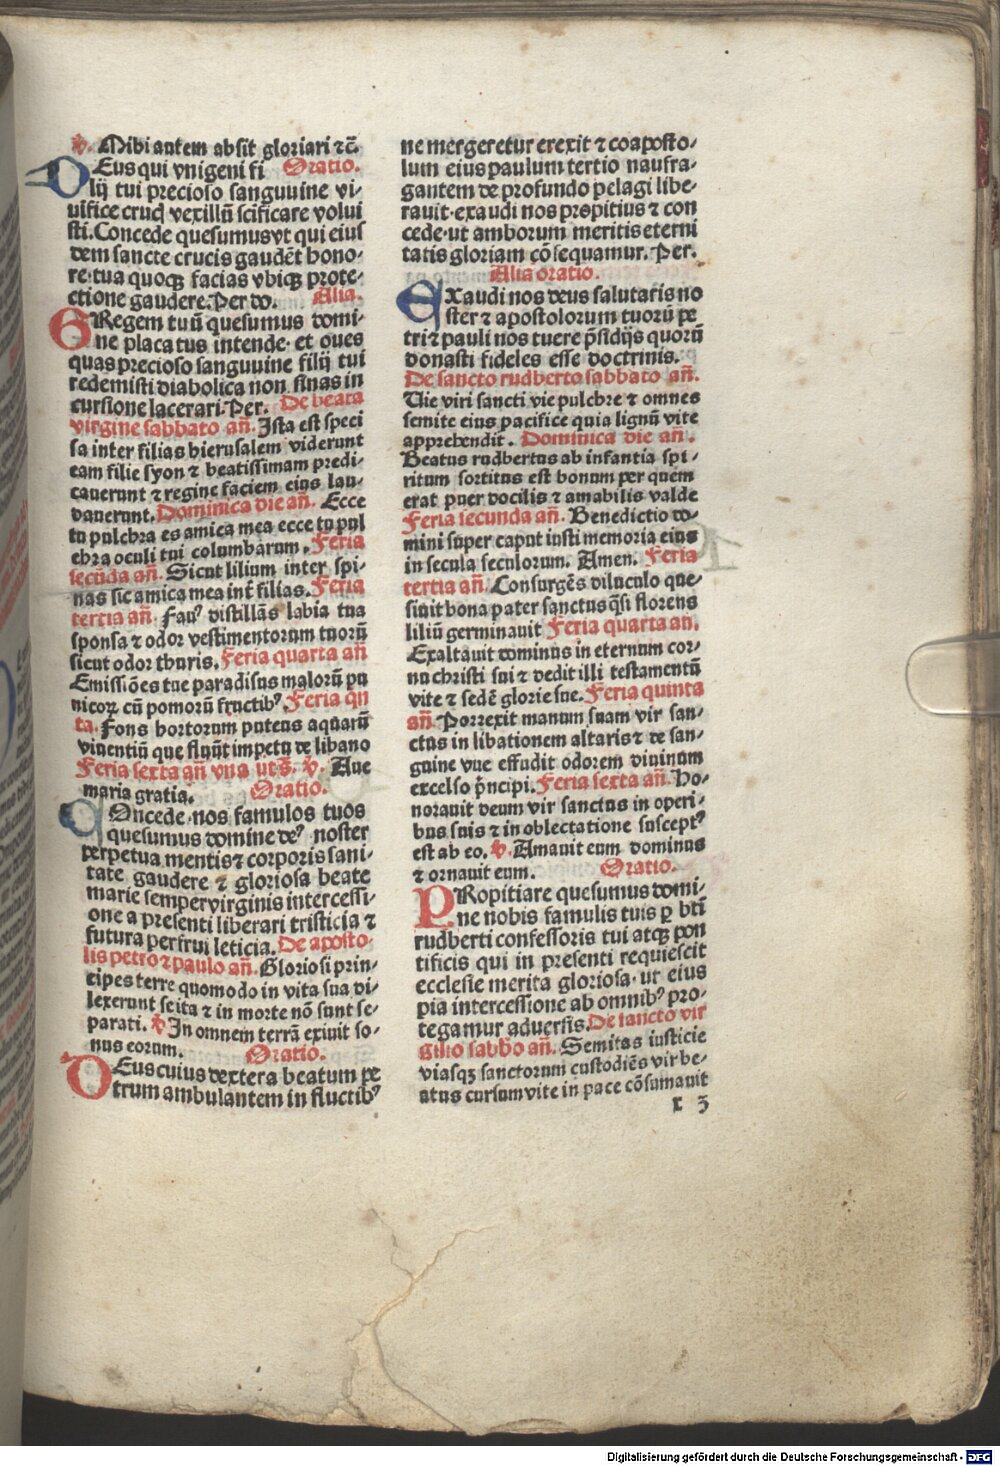 ℣. Mihi autem absit gloriari ⁊ c̄.
DEus qui vnigeni fi Oratio.
lij tui precioso sanguuine vi-
uifice cruc̄ vexillū sc̄ificare volui
sti. Concede quesumus vt qui eius
dem sancte crucis gaudēt hono-
re· tua quoqꝫ facias vbiqꝫ prote-
ctione gaudere. Per do. Alia.
GRegem tuū quesumus domi-
ne placatus intende· et oues
quas precioso sanguuine filij tui
redemisti diabolica non sinas in
cursione lacerari. Per. De beata
virgine sabbato añ. Ista est speci
sa inter filias hierusalem viderunt
eam filie syon ⁊ beatissimam predi-
cauerunt ⁊ regine faciem eius lau-
dauerunt. Dominica die añ. Ecce
tu pulchra es amica mea ecce tu pul
chra oculi tui columbarum. Feria
secūda añ. Sicut lilium inter spi-
nas sic amica mea int̄ filias. Feria
tertia añ. Fauꝰ distillās labia tua
sponsa ⁊ odor vestimentorum tuorū
sicut odor thuris. Feria quarta añ
Emissiōes tue paradisus malorū pu
nicoꝝ cū pomorū fructibꝰ. Feria qn
ta. Fons hortorum puteus aquarū
viuentiū que fluūt impetu de libano
Feria sexta añ vna ut s̄. ℣. Aue
maria gratia. Oratio.
COncede nos famulos tuos
quesumus domine deꝰ noster
perpetua mentis ⁊ corporis sani-
tate gaudere ⁊ gloriosa beate
marie semper virginis intercessi-
one a presenti liberari tristicia ⁊
futura perfrui leticia. De aposto-
lis petro ⁊ paulo añ. Gloriosi prin-
cipes terre quomodo in vita sua di-
lexerunt se ita ⁊ in morte nō sunt se-
parati. ℣ In omnem terrā exiuit so-
nus eorum. Oratio.
DEus cuius dextera beatum pe
trum ambulantem in fluctibꝰ
ne mergeretur erexit ⁊ coaposto-
lum eius paulum tertio naufra-
gantem de profundo pelagi libe-
rauit· exaudi nos propitius ⁊ con
cede· ut amborum meritis eterni
tatis gloriam cōsequamur. Per.
Alia oratio.
EXaudi nos deus salutaris no
ster ⁊ apostolorum tuorū pe
tri ⁊ pauli nos tuere p̄sidijs quorū
donasti fideles esse doctrinis.
De sancto rudberto sabbato añ.
Vie viri sancti vie pulchre ⁊ omnes
semite eius pacifice quia lignū vite
apprehendit. Dominica die añ.
Beatus rudbertus ab infantia spi-
ritum sortitus est bonum per quem
erat puer docilis ⁊ amabilis valde
Feria secunda añ. Benedictio do-
mini super caput iusti memoria eius
in secula seculorum. Amen. Feria
tertia añ. Consurgēs diluculo que-
siuit bona pater sanctus q̄si florens
liliū germinauit Feria quarta an.
Exaltauit dominus in eternum cor-
nu christi sui ⁊ dedit illi testamentū
vite ⁊ sedē glorie sue. Feria quinta
añ. Porrexit manum suam vir san-
ctus in libationem altaris ⁊ de san-
guine vue effudit odorem diuinum
excelso p̄ncipi. Feria sexta añ. Ho-
norauit deum vir sanctus in operi-
bus suis ⁊ in oblectatione susceptꝰ
est ab eo. ℣. Amauit eum dominus
⁊ ornauit eum. Oratio.
PRopitiare quesumus domi-
ne nobis famulis tuis ꝑ bt̄i
rudberti confessoris tui atqꝫ pon
tificis qui in presenti requiescit
ecclesie merita gloriosa· ut eius
pia intercessione ab omnibꝰ pro-
tegamur aduersis. De sancto vir
gilio sabbo añ. Semitas iusticie
viasqꝫ sanctorum custodiēs vir be-
atus cursum vite in pace cōsumauit
r 3
Digitalisierung gefördert durch die Deutsche Forschungsgemeinschaft - DFG